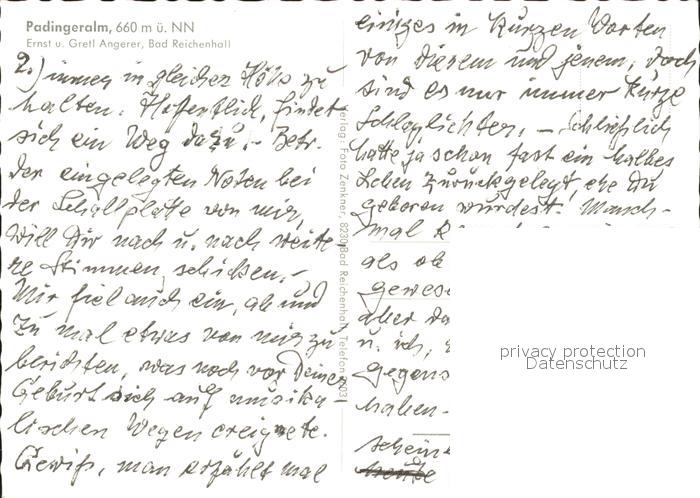 Padingeralm, 660 m ü. NN
Ernst u. Gretl Angerer, Bad Reichenhall
2.) immer in gleicher Höhe zu
halten. Hoffentlich, findet
sich ein Weg dazu. - Betr.
der eingelegten Noten bei
der Schallplatte von mir,
will Dir nach u. nach weite-
re Stimmen, schicken. -
Mir fiel auch ein, ab und
zu mal etwas von mir zu
berichten, was noch vor Deiner
Geburt sich auf musika-
lischen Wegen ereignete.
Gewiß, man erzählt mal
Verlag: Foto Zenkner, 8230 Bad Reichenhall, Telefon
einiges in kurzen Worten
von diesem und jenem, doch
sind es nur immer kurze
Schlaglichter, - schließlich
hatte ja schon fast ein halbes
Leben zurückgelegt, ehe Du
geboren wurdest. Manch-
mal
als ob
gewese
aber da
u. ich,
gegens
haben-
schein
heute
privacy protection
Datenschutz